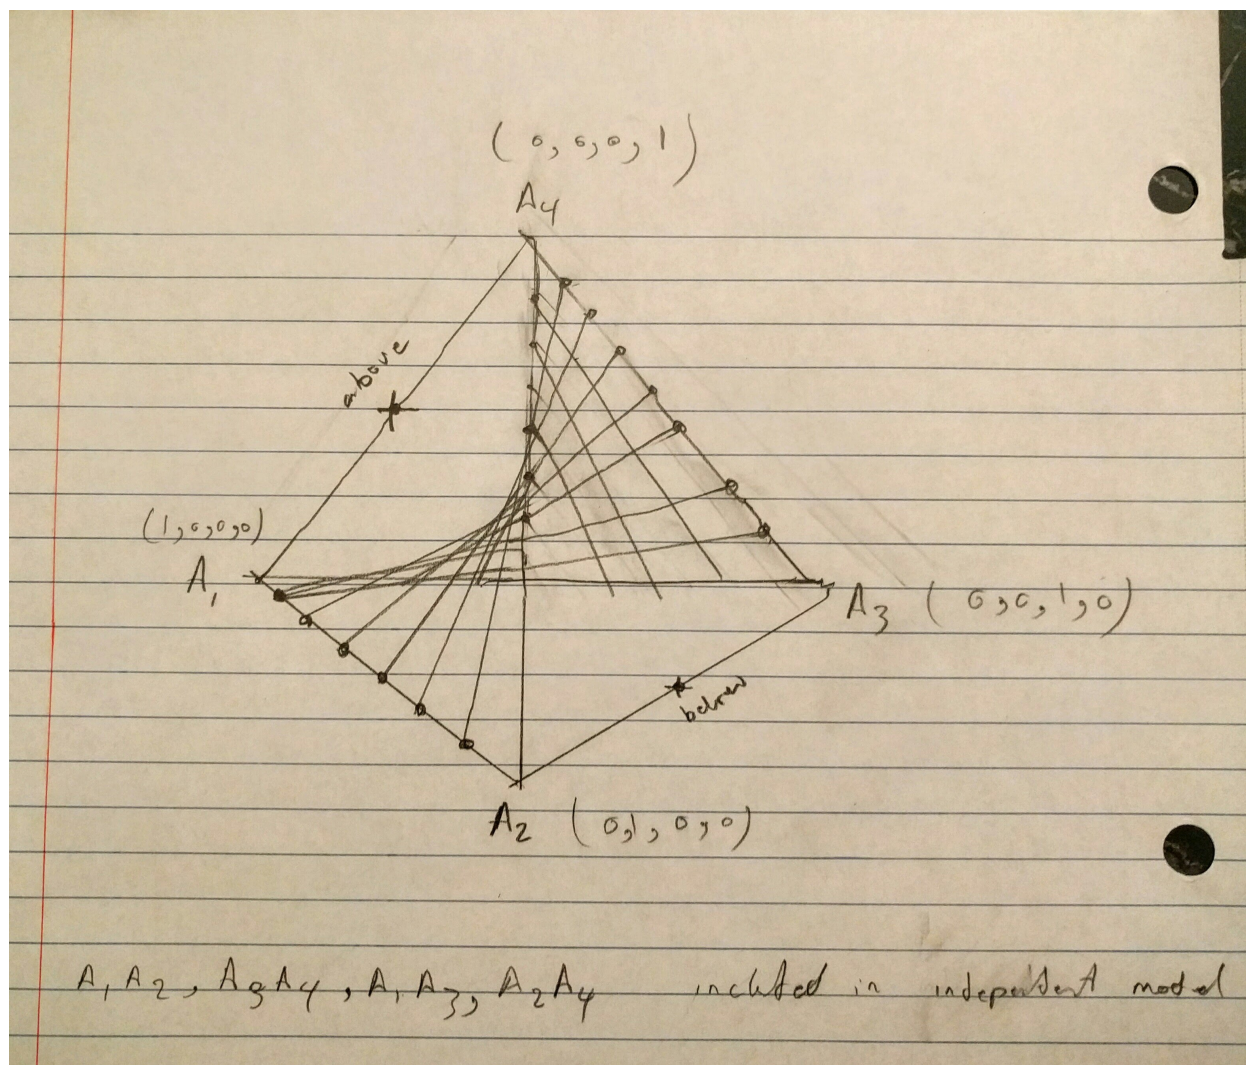 (0,0,0,1)
A4
above
(1,0,0,0)
A1
A3 (0,0,1,0)
below
A2 (0,1,0,0)
A1A2, A3A4, A1A3, A2A4 included in independent model